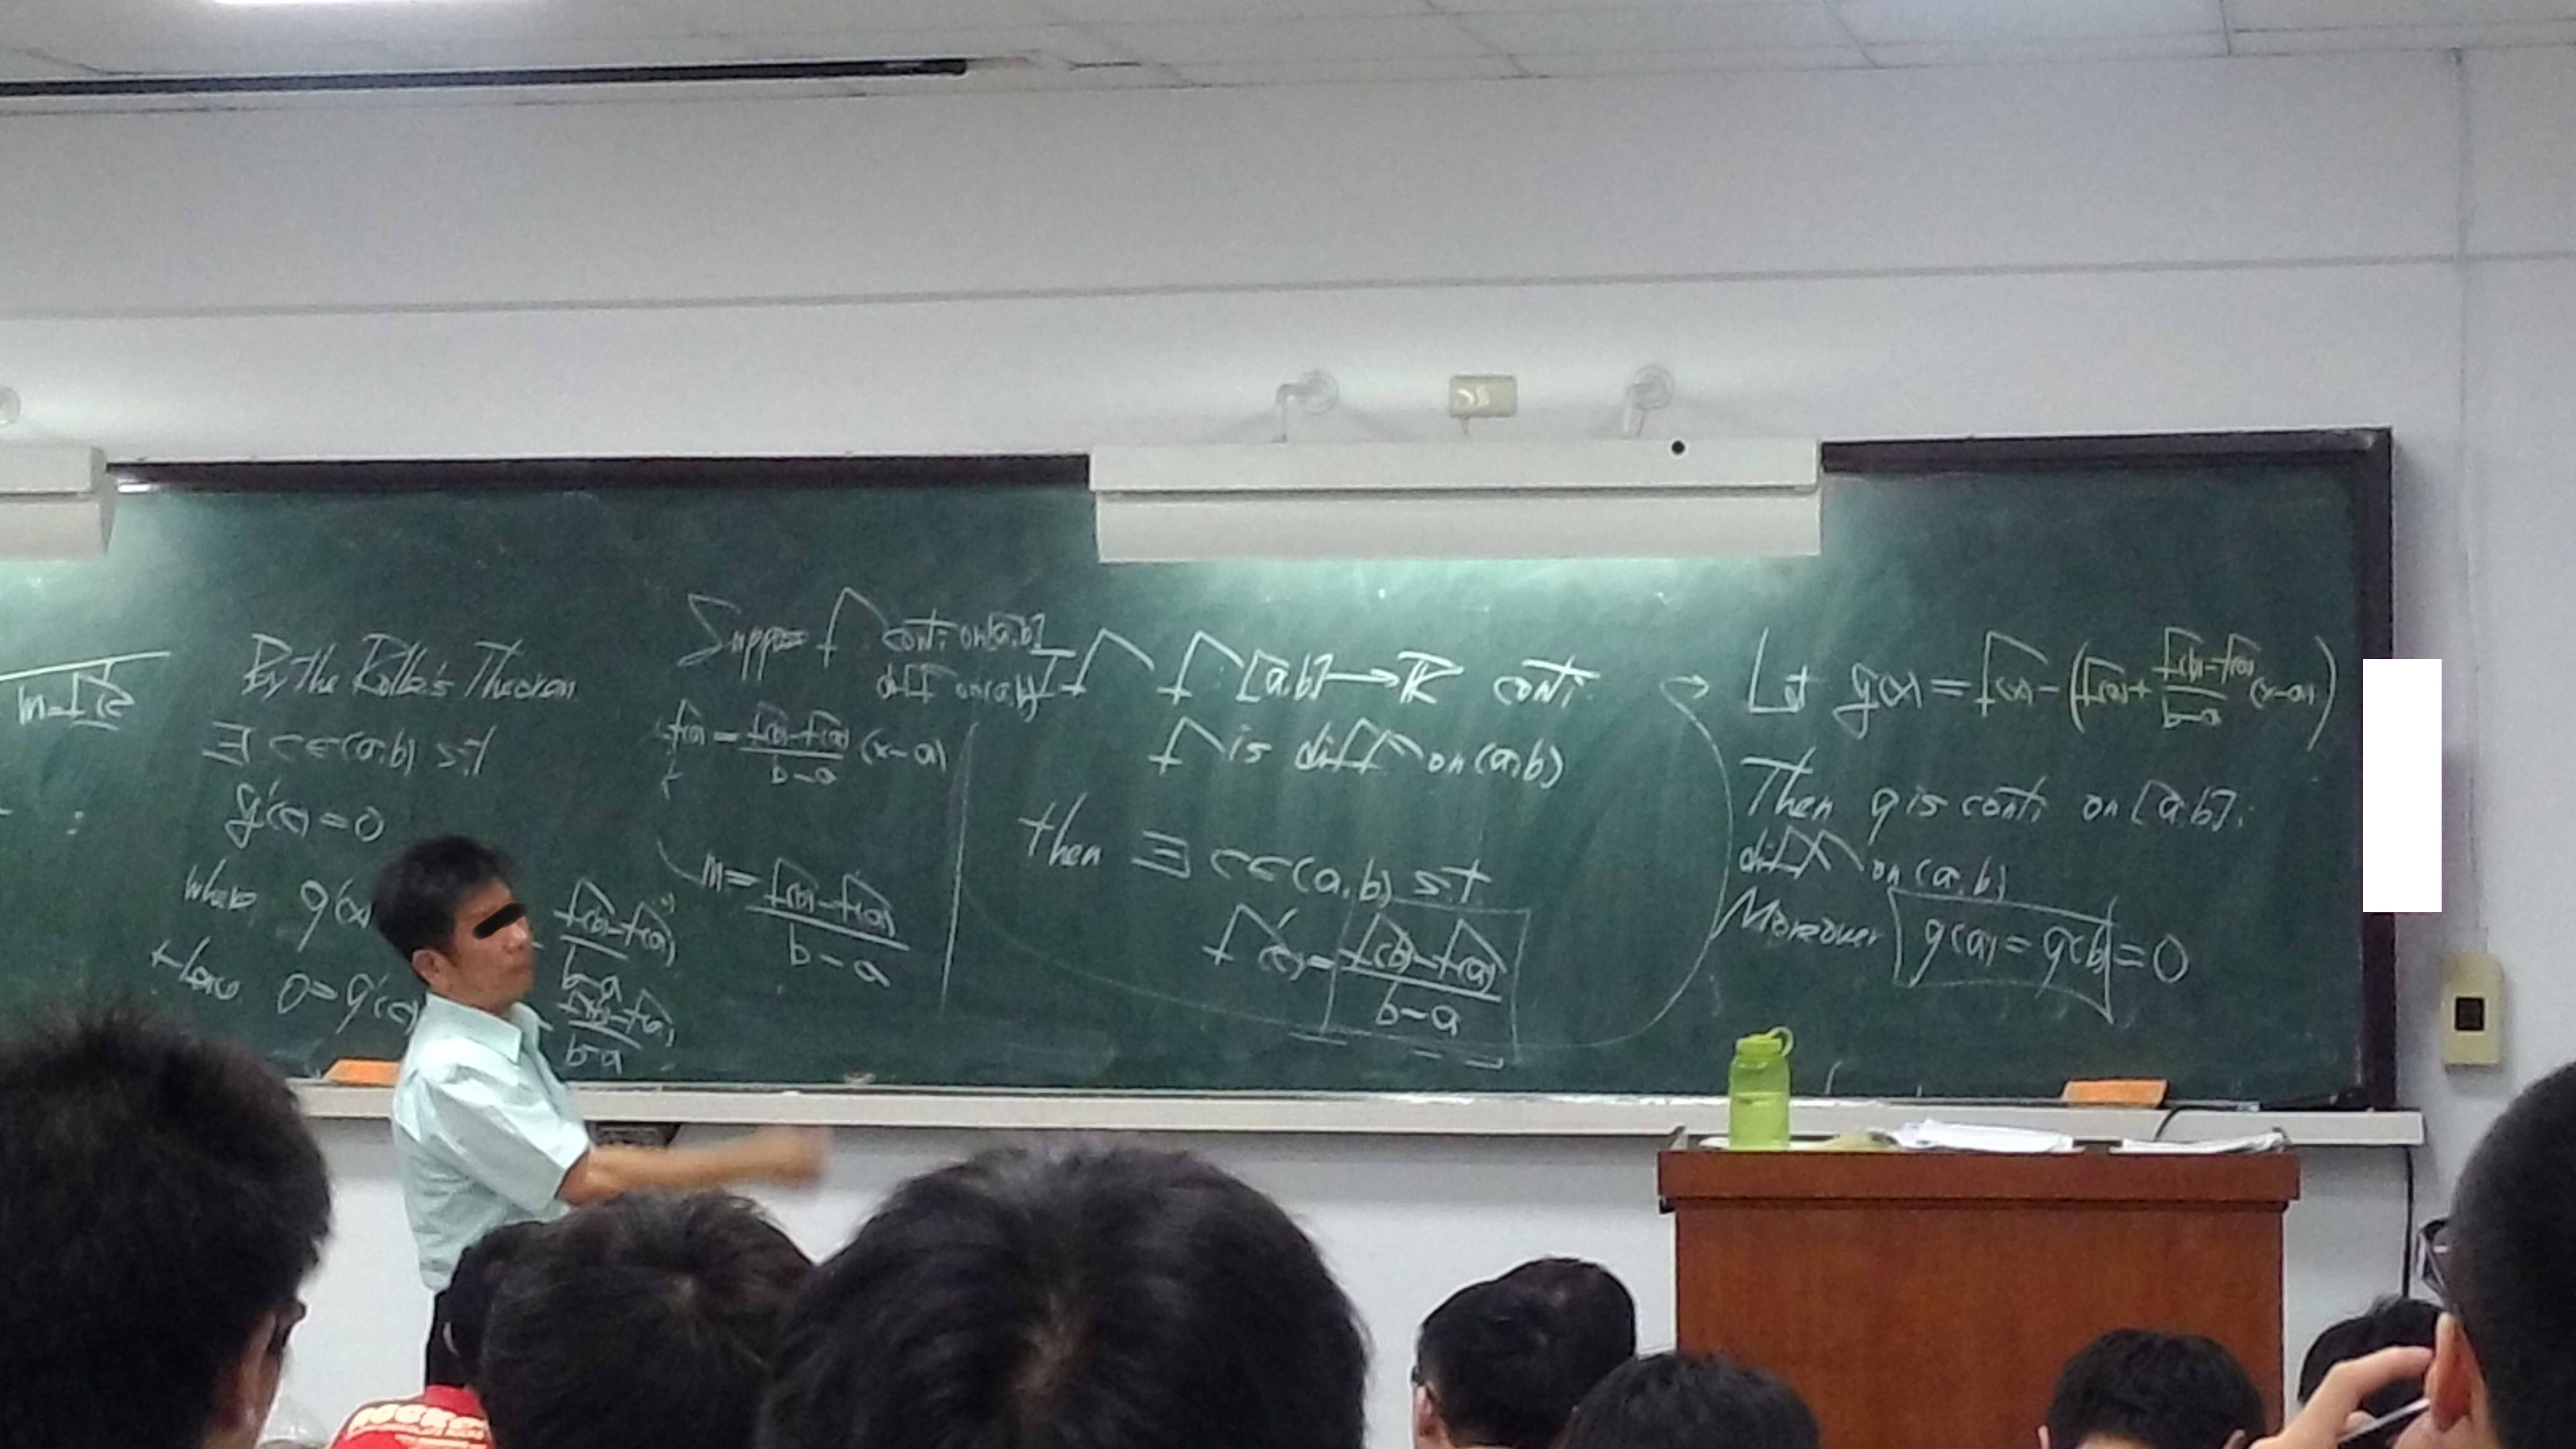 m=f'(c
By the Rolle's Theorem
∃ c∈(a,b) s.t
g'(c)=0
where g'(x
f(b)-f(a)
b-a
Hence 0=g'(c)
f(b)-f(a)
b-a
Suppose f conti on[a,b]
diff on(a,b)
f(a)
f(b)-f(a)
b-a
(x-a)
m= f(b)-f(a)
b-a
If f:[a,b]→ℝ conti
f is diff on(a,b)
then ∃ c∈(a,b) s.t
f'(c)= f(b)-f(a)
b-a
Let g(x)=f(x)-(f(a)+ f(b)-f(a)
b-a
(x-a))
Then g is conti on[a,b];
diff on(a,b)
Moreover g(a)=g(b)=0